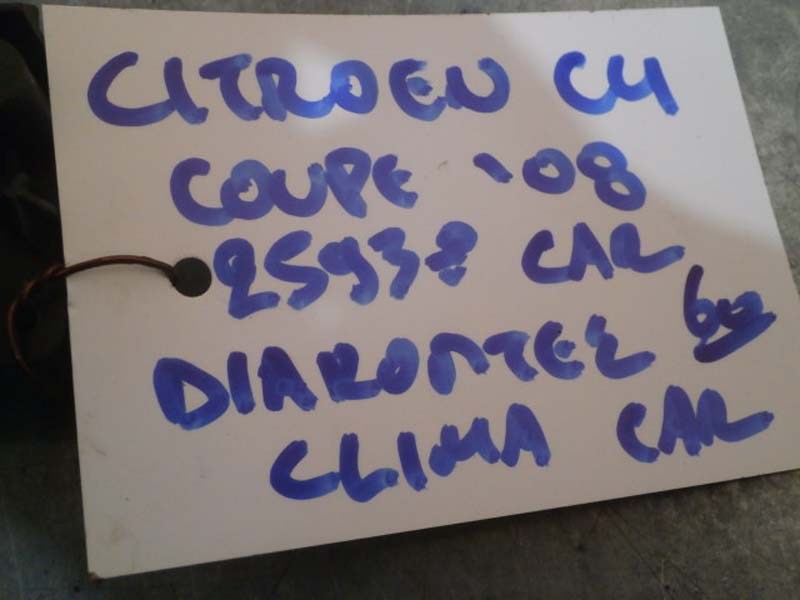 CITROEN C4
COUPE '08
25938 CAR
DIAROMTEL 60
CLIMA CAR